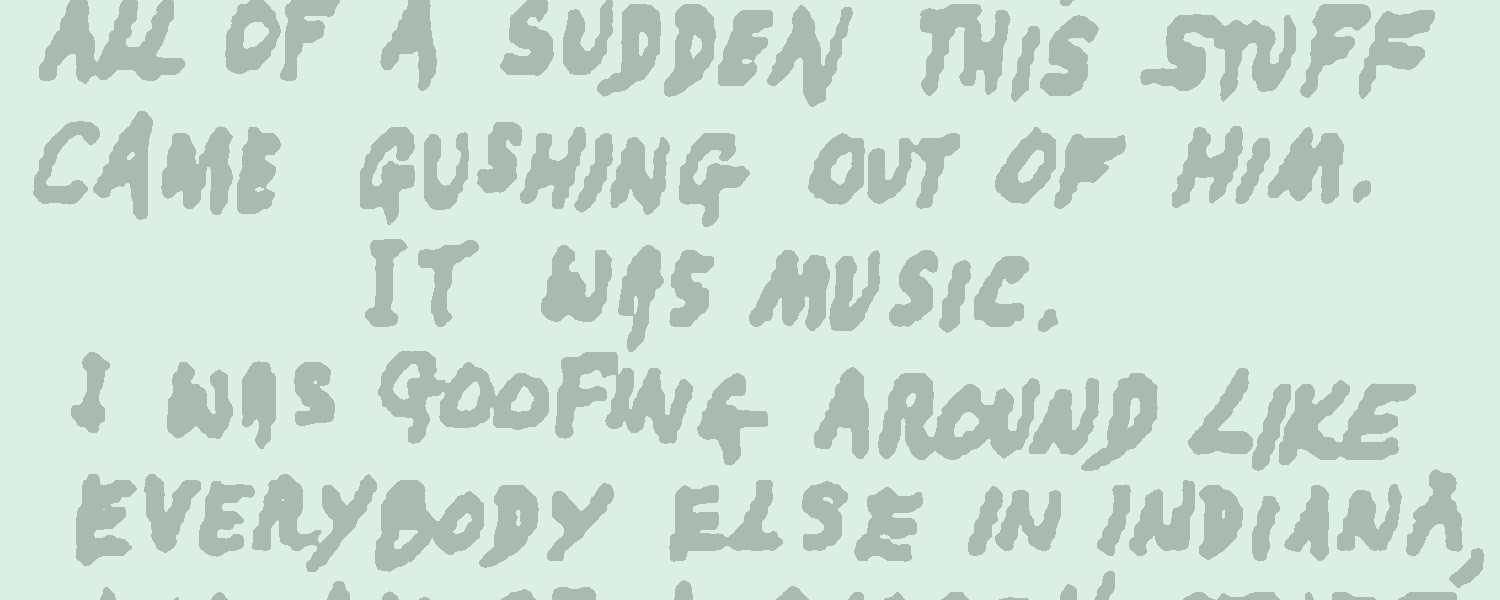 ALL OF A SUDDEN THIS STUFF
CAME GUSHING OUT OF HIM.
IT WAS MUSIC.
I WAS GOOFING AROUND LIKE
EVERYBODY ELSE IN INDIANA,